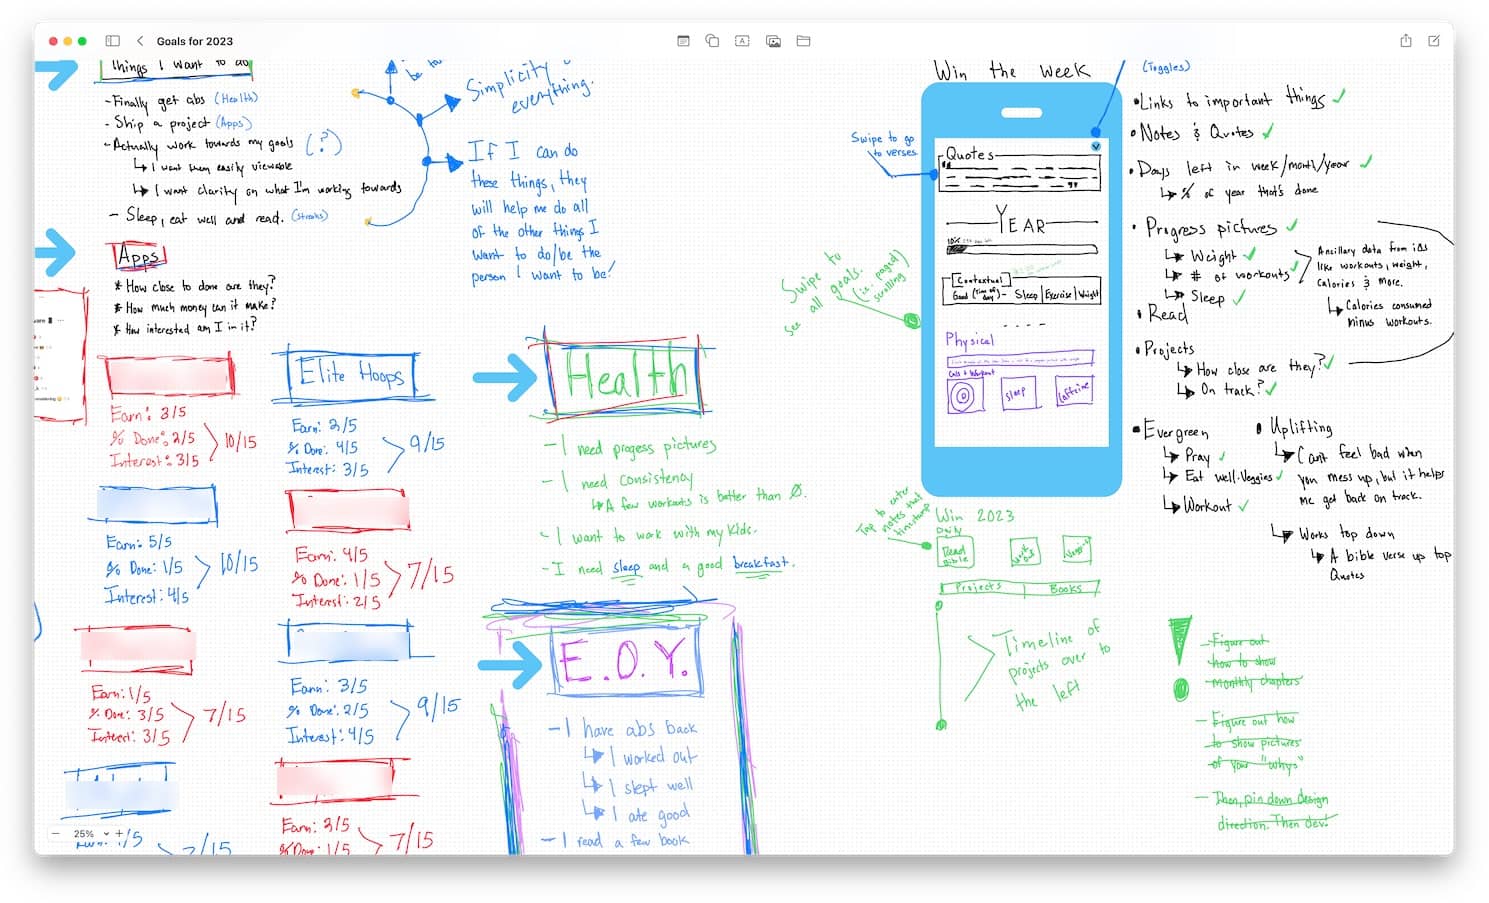 Goals for 2023
Things I want to do
-Finally get abs (Health)
- Ship a project (Apps)
-Actually work towards my goals (?)
I want them easily viewable
I want clarity on what I'm working towards
- Sleep, eat well and read. (Streaks)
Apps
* How close to done are they?
* How much money can it make?
* How interested am I in it?
Earn: 3/5
% Done: 2/5
Interest: 3/5
10/15
Elite Hoops
Earn: 2/5
% Done: 4/5
Interest: 3/5
9/15
Earn: 5/5
% Done: 1/5
Interest: 4/5
10/15
Earn: 4/5
% Done: 1/5
Interest: 2/5
7/15
Earn: 1/5
% Done: 3/5
Interest: 3/5
7/15
Earn: 3/5
% Done: 2/5
Interest: 4/5
9/15
Earn: 3/5
% Done: 1/5
7/15
1/5
7/15
25%
be
Simplicity
everything.
If I can do
these things, they
will help me do all
of the other things I
want to do/be the
person I want to be!
Health
- I need progess pictures
- I need consistency
A few workouts is better than Ø.
- I want to work with my kids.
- I need sleep and a good breakfast.
E.O.Y.
- I have abs back
I worked out
I slept well
I ate good
- I read a few book
Win the week
(Toggles)
Swipe to go
to verses
Quotes
YEAR
10%
[Contextual]
Good (time of day) - Sleep | Exercise | Weight
Physical
Cals + Workout
Sleep
Caffeine
Swipe to
see all goals.
(i.e. paged)
scrolling
Tap to enter
notes that
timestamp
Win 2023
Daily
Read
Bible
Work
out
Veggies
Projects
Books
Timeline of
projects over to
the left
•Links to important things
•Notes & Quotes
•Days left in week/month/year
% of year that's done
• Progress pictures
Weight
# of workouts
Sleep
• Read
•Projects
How close are they?
On track?
Ancillary data from iOS
like workouts, weight,
calories & more.
Calories consumed
minus workouts.
•Evergreen
Pray
Eat well-Veggies
Workout
• Uplifting
Can't feel bad when
you mess up, but it helps
me get back on track.
Works top down
A bible verse up top
Quotes
-Figure out
how to show
monthly chapters
- Figure out how
to show pictures
of your "whys"
- Then, pin down design
direction. Then dev!